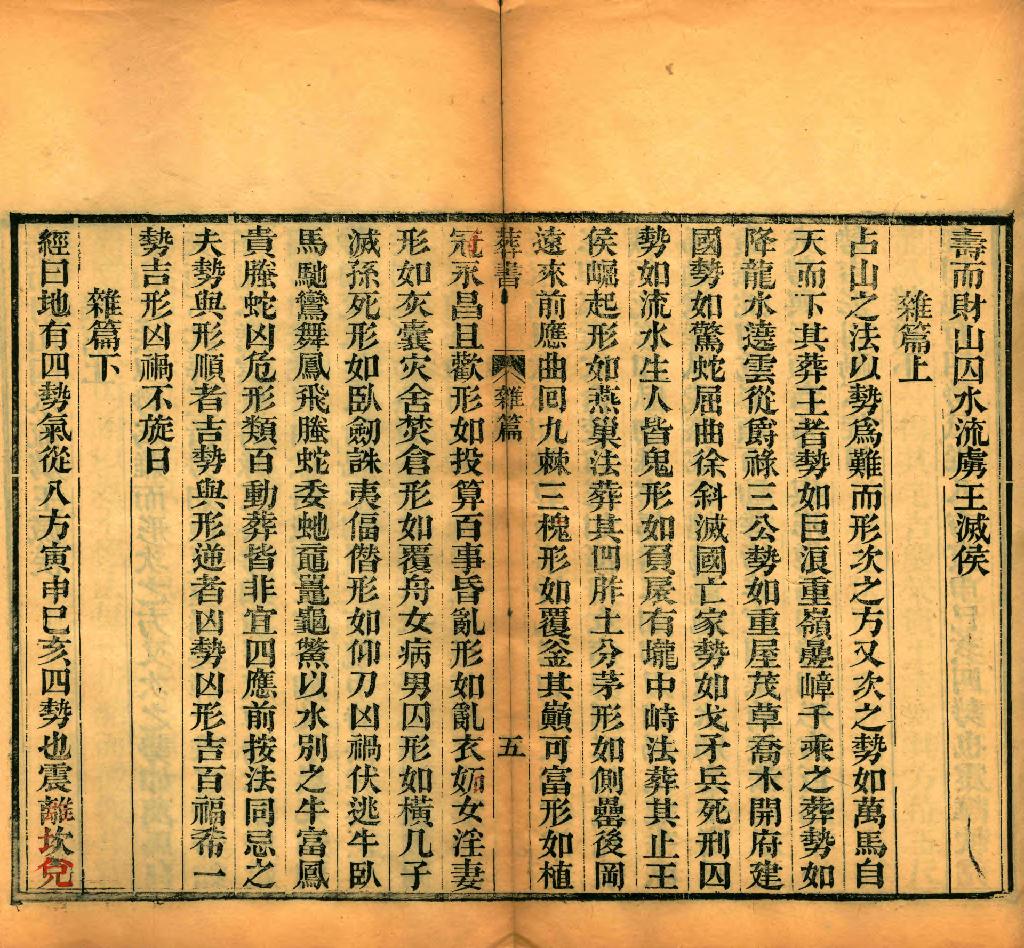 壽而財山囚水流虜王滅侯
雜篇上
占山之法以勢爲難而形次之方又次之勢如萬馬自
天而下其葬王者勢如巨浪重嶺疊嶂千乘之葬勢如
降龍水遶雲從爵祿三公勢如重屋茂草喬木開府建
國勢如驚蛇屈曲徐斜滅國亡家勢如戈矛兵死刑囚
勢如流水生人皆鬼形如負扆有壠中峙法葬其止王
侯崛起形如燕巢法葬其凹胙土分茅形如側罍後岡
遠來前應曲回九棘三槐形如覆釜其巔可富形如植
葬書
雜篇
五
冠永昌且歡形如投算百事昏亂形如亂衣妬女淫妻
形如灰囊灾舍焚倉形如覆舟女病男囚形如橫几子
滅孫死形如臥劒誅夷偪僭形如仰刀凶禍伏逃牛臥
馬馳鸞舞鳳飛螣蛇委虵黿鼉龜鱉以水別之牛富鳳
貴螣蛇凶危形類百動葬皆非宜四應前按法同忌之
夫勢與形順者吉勢與形逆者凶勢凶形吉百福希一
勢吉形凶禍不旋日
雜篇下
經曰地有四勢氣從八方寅申巳亥四勢也震離坎兌